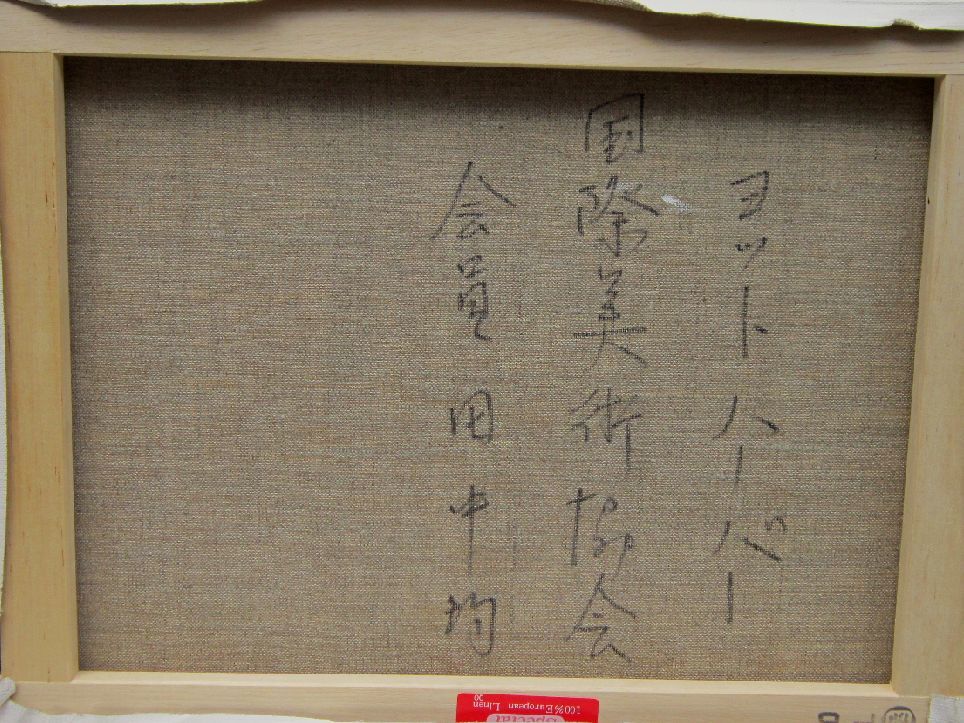 ヨットハーバー
国際美術協会
会員 田中均
Special
100% European Linen